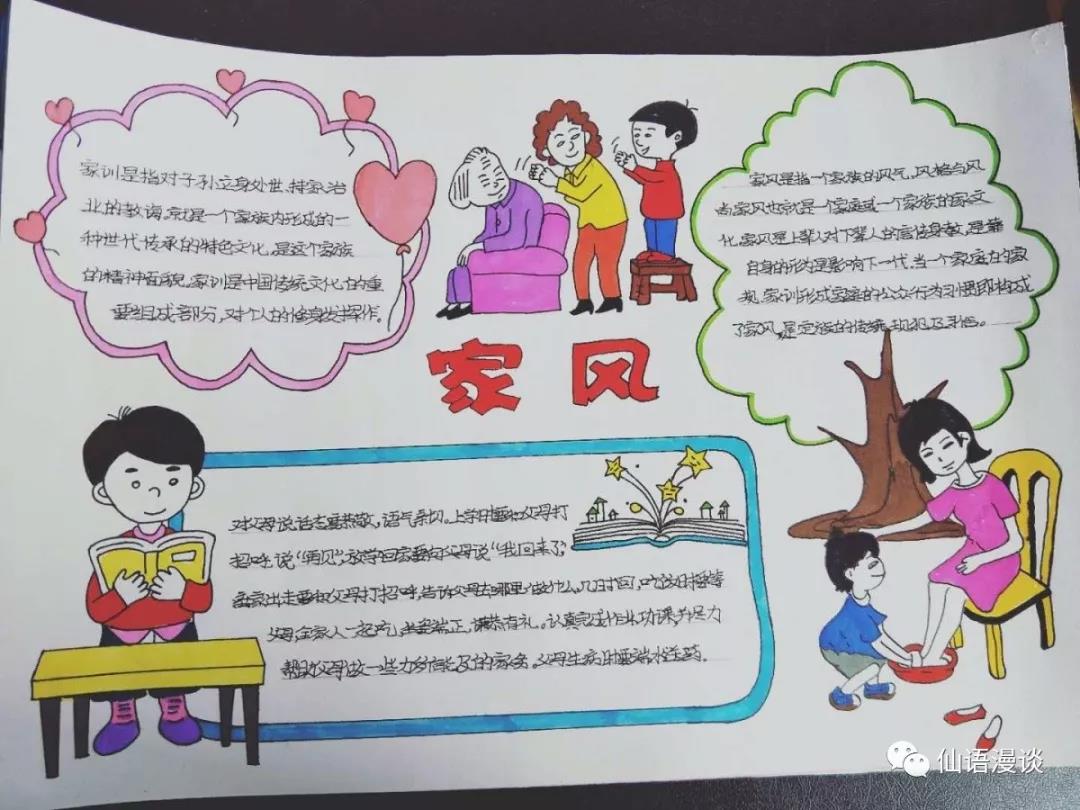 家训是指对子孙立身处世、持家治
业的教诲。家训是一个家族内形成的一
种世代传承的特色文化，是这个家族
的精神面貌。家训是中国传统文化的重
要组成部分，对个人的修身发挥作。
家风是指一个家族的风气，风格与风
尚。家风也就是一个家庭或一个家族的家文
化。家风是上辈人对下辈人的言传身教，是靠
自身的行为是影响下一代，当一个家庭在的家
规、家训形成家庭的公众行为习惯即构成
了家风，是家族的传统
家风
对父母说话要恭敬，语气亲切。上学时要和父母打
招呼，说“再见”，放学回家要向父母说“我回来了”
离家出走要和父母打招呼，告诉父母去哪里，做什么，几时回，吃饭时摇等
父母，全家人一起吃，坐姿端正，谦恭有礼。认真完成作业功课，并尽力
帮助父母做一些力所能及的家务。父母生病时要端水送药。
仙语漫谈